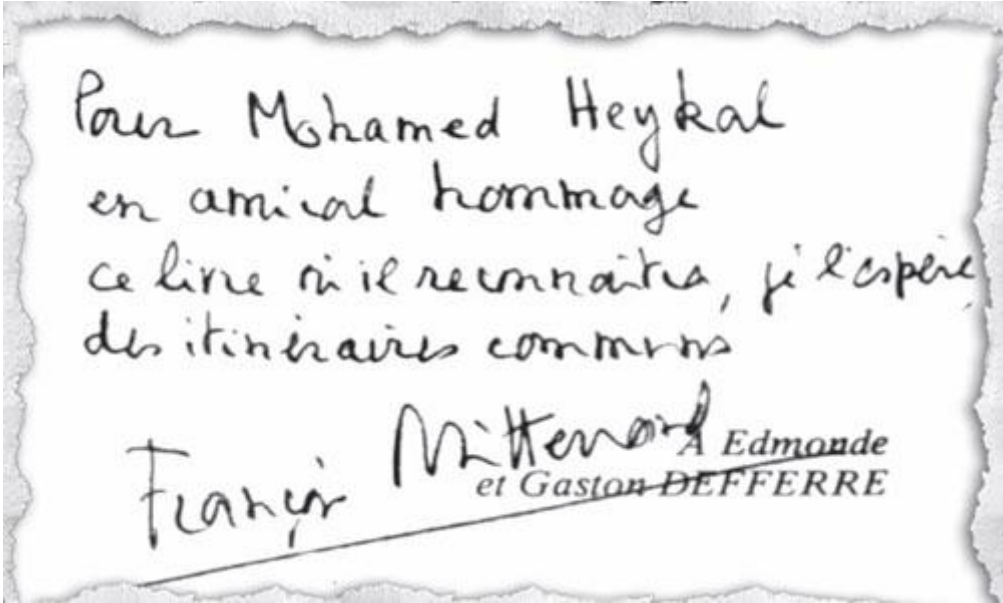 Pour Mohamed Heykal
en amical hommage
ce livre où il reconnaîtra, je l'espère,
des itinéraires communs
François Mitterrand
A Edmonde
et Gaston DEFFERRE